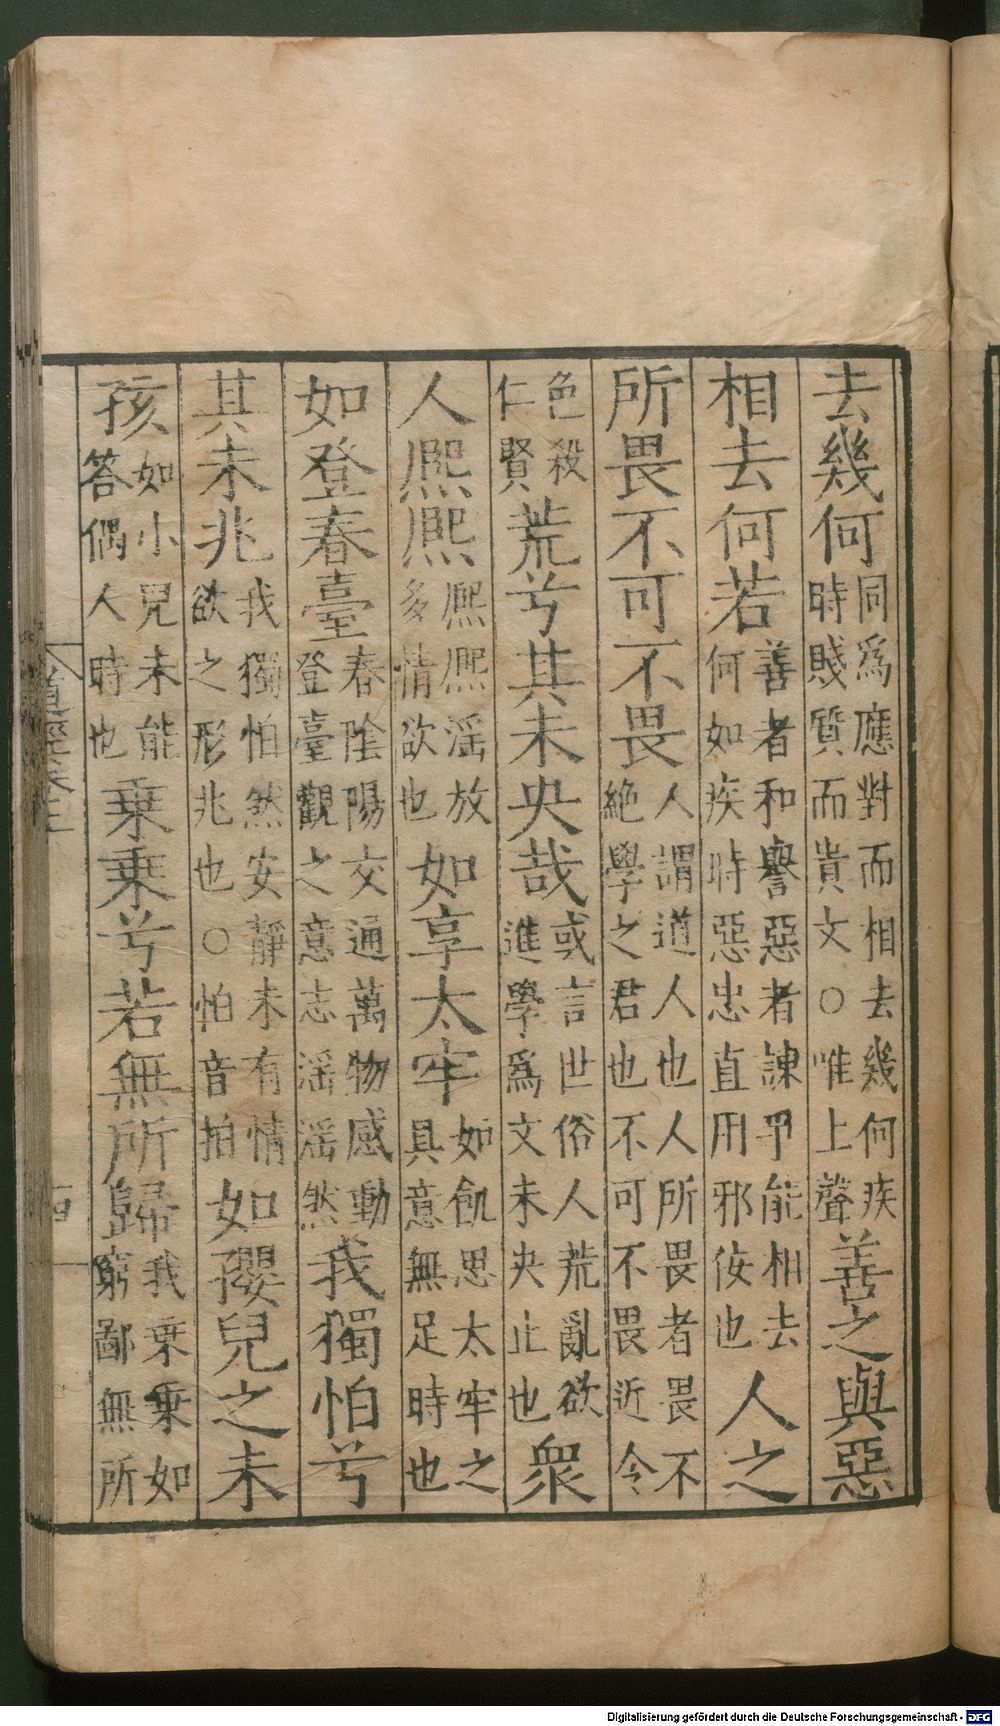 去幾何同爲應對而相去幾何疾時賤質而貴文○惟上聲善之與惡
相去何若善者和譽惡者諫爭能相去何如疾時惡忠直用邪佞也人之
所畏不可不畏人謂道人也人所畏者畏不絶學之君也不可不畏近令
色殺仁賢荒兮其未央哉或言世俗人荒亂欲進學爲文未央止也衆
人熈熈熈熈滛放多情欲也如享太牢如飢思太牢之具意無足時也
如登春臺春陰陽交通萬物感動登臺觀之意志滛滛然我獨怕兮
其未兆我獨怕然安靜未有情欲之形兆也○怕音拍如孾兒之未
孩如小兒未能答偶人時也乗乗兮若無所歸我乗乗如窮鄙無所
道經卷上
四
Digitalisierung gefördert durch die Deutsche Forschungsgemeinschaft - DFG